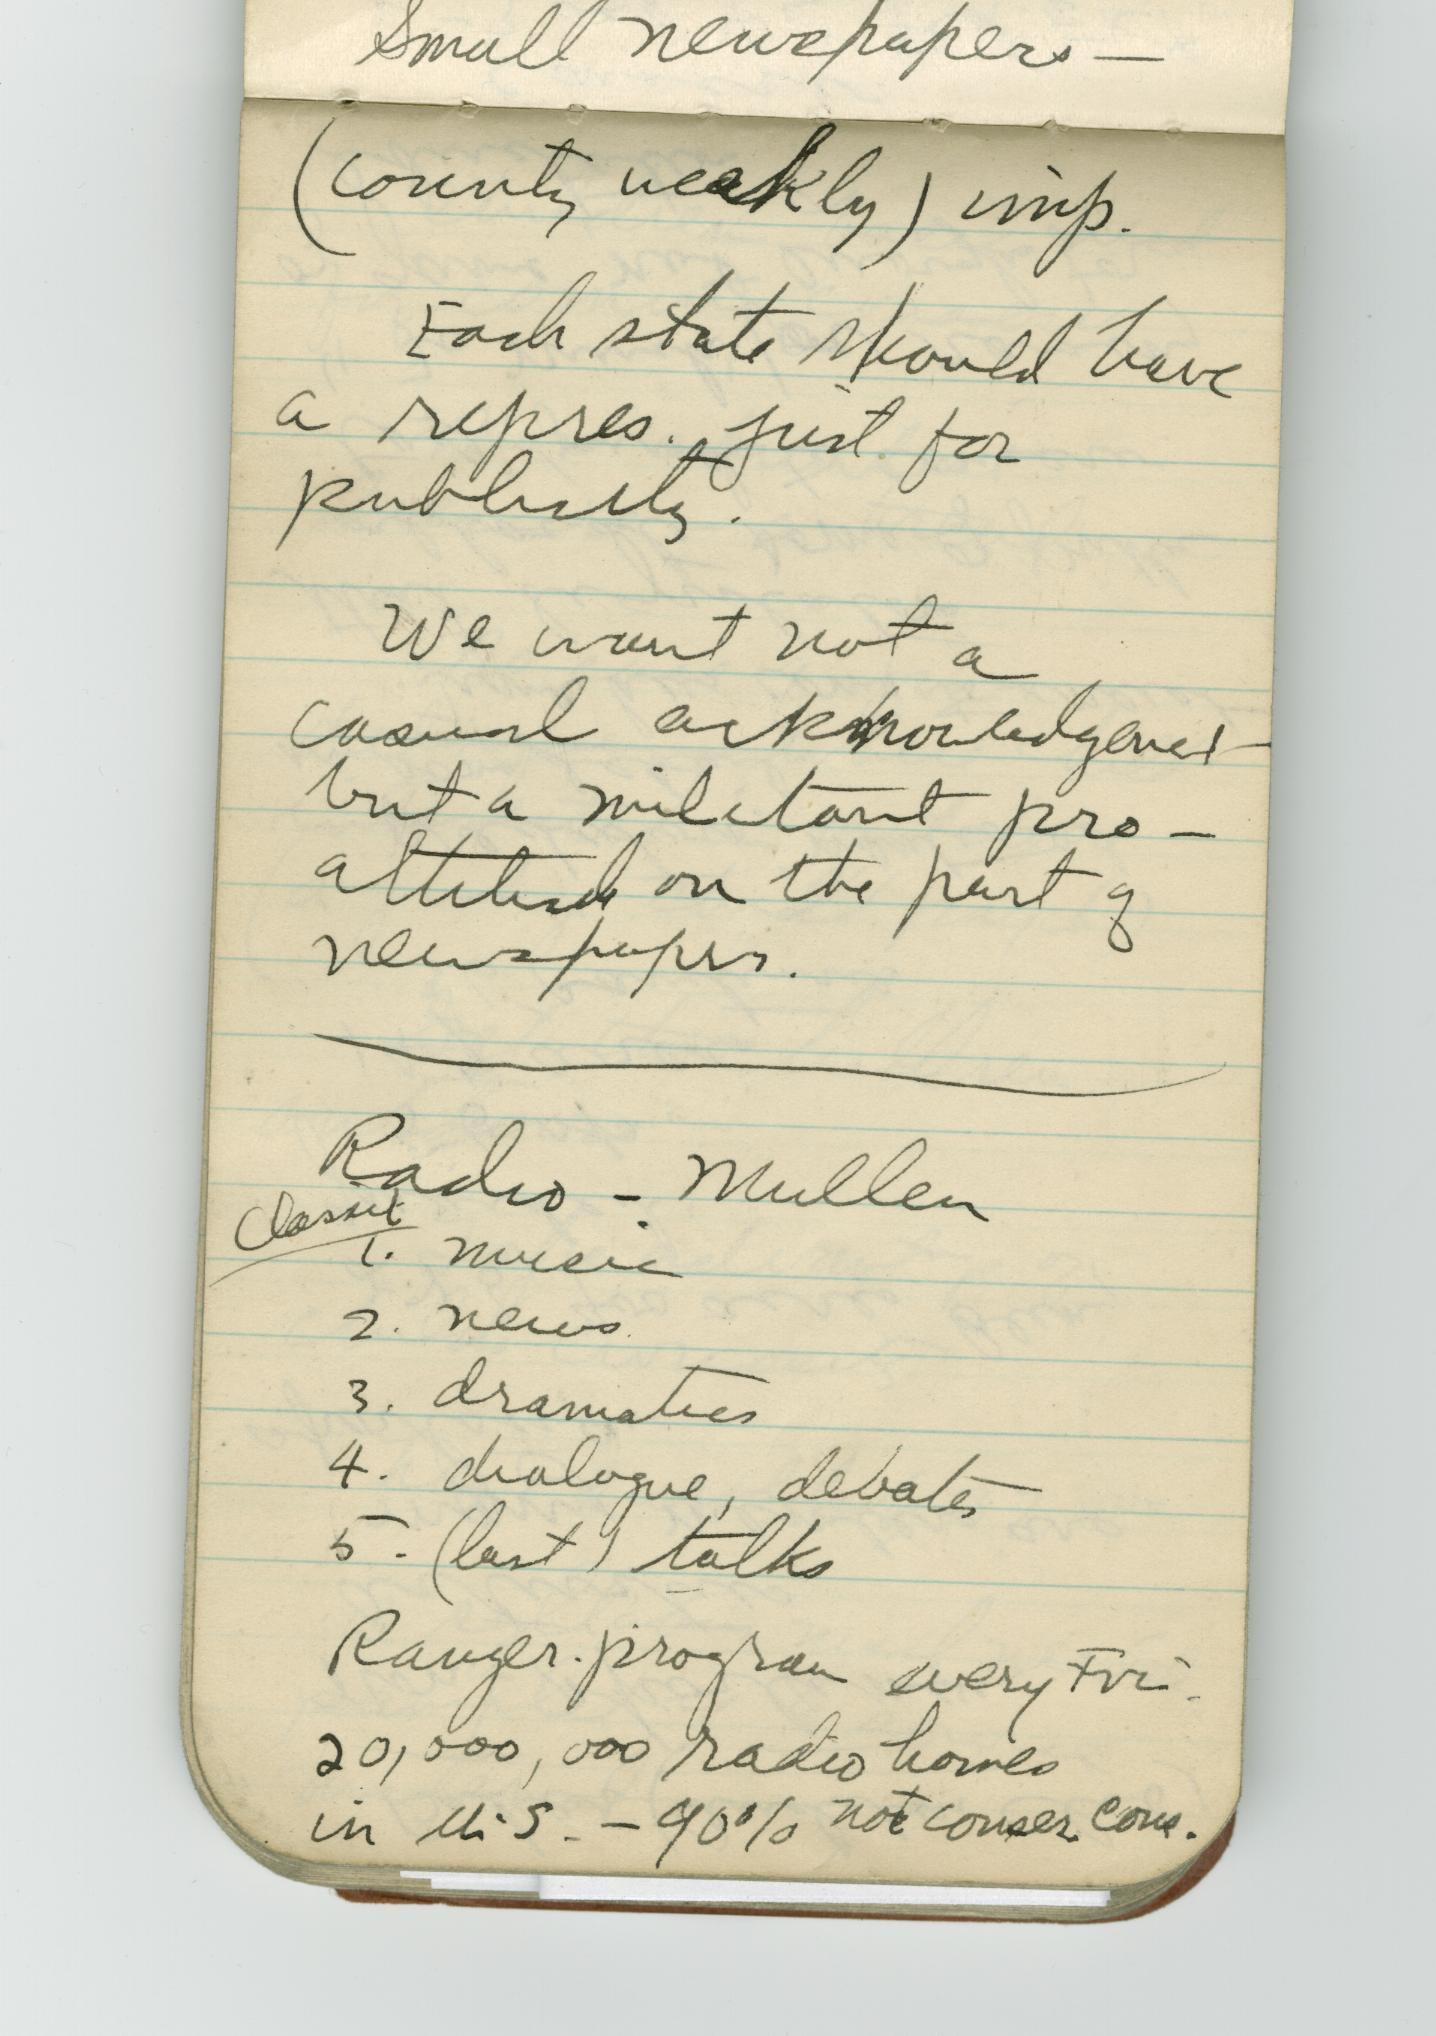 Small newspapers —
(county weekly) imp.
Each state should have
a repres. just for
publicity.
We want not a
casual acknowledgement
but a militant pro —
attitude on the part of
newspapers.
Radio - Mullen
Classif.
1. music
2. news
3. dramatics
4. dialogue, debates
5. (last) talks
Ranger program every Fri.
20,000,000 radio homes
in U.S. — 90% not conser. cons.